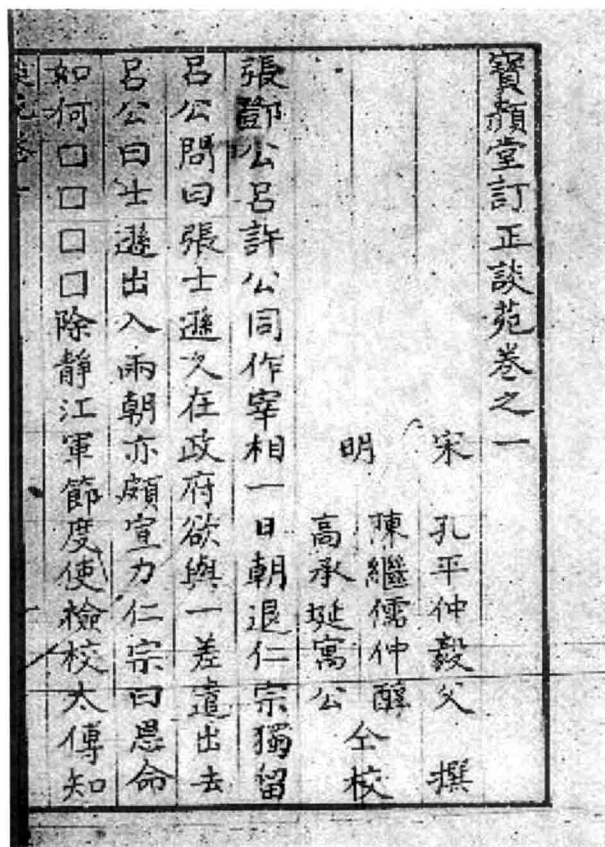 寶顏堂訂正談苑卷之一
宋 孔平仲毅父 撰
明 陳繼儒仲醇
高承埏寓公 仝校
張鄧公呂許公同作宰相一日朝退仁宗獨留
呂公問曰張士遜久在政府欲與一差遣出去
呂公曰士遜出入兩朝亦頗宣力仁宗曰恩命
如何囗囗囗囗除靜江軍節度使檢校太傅知